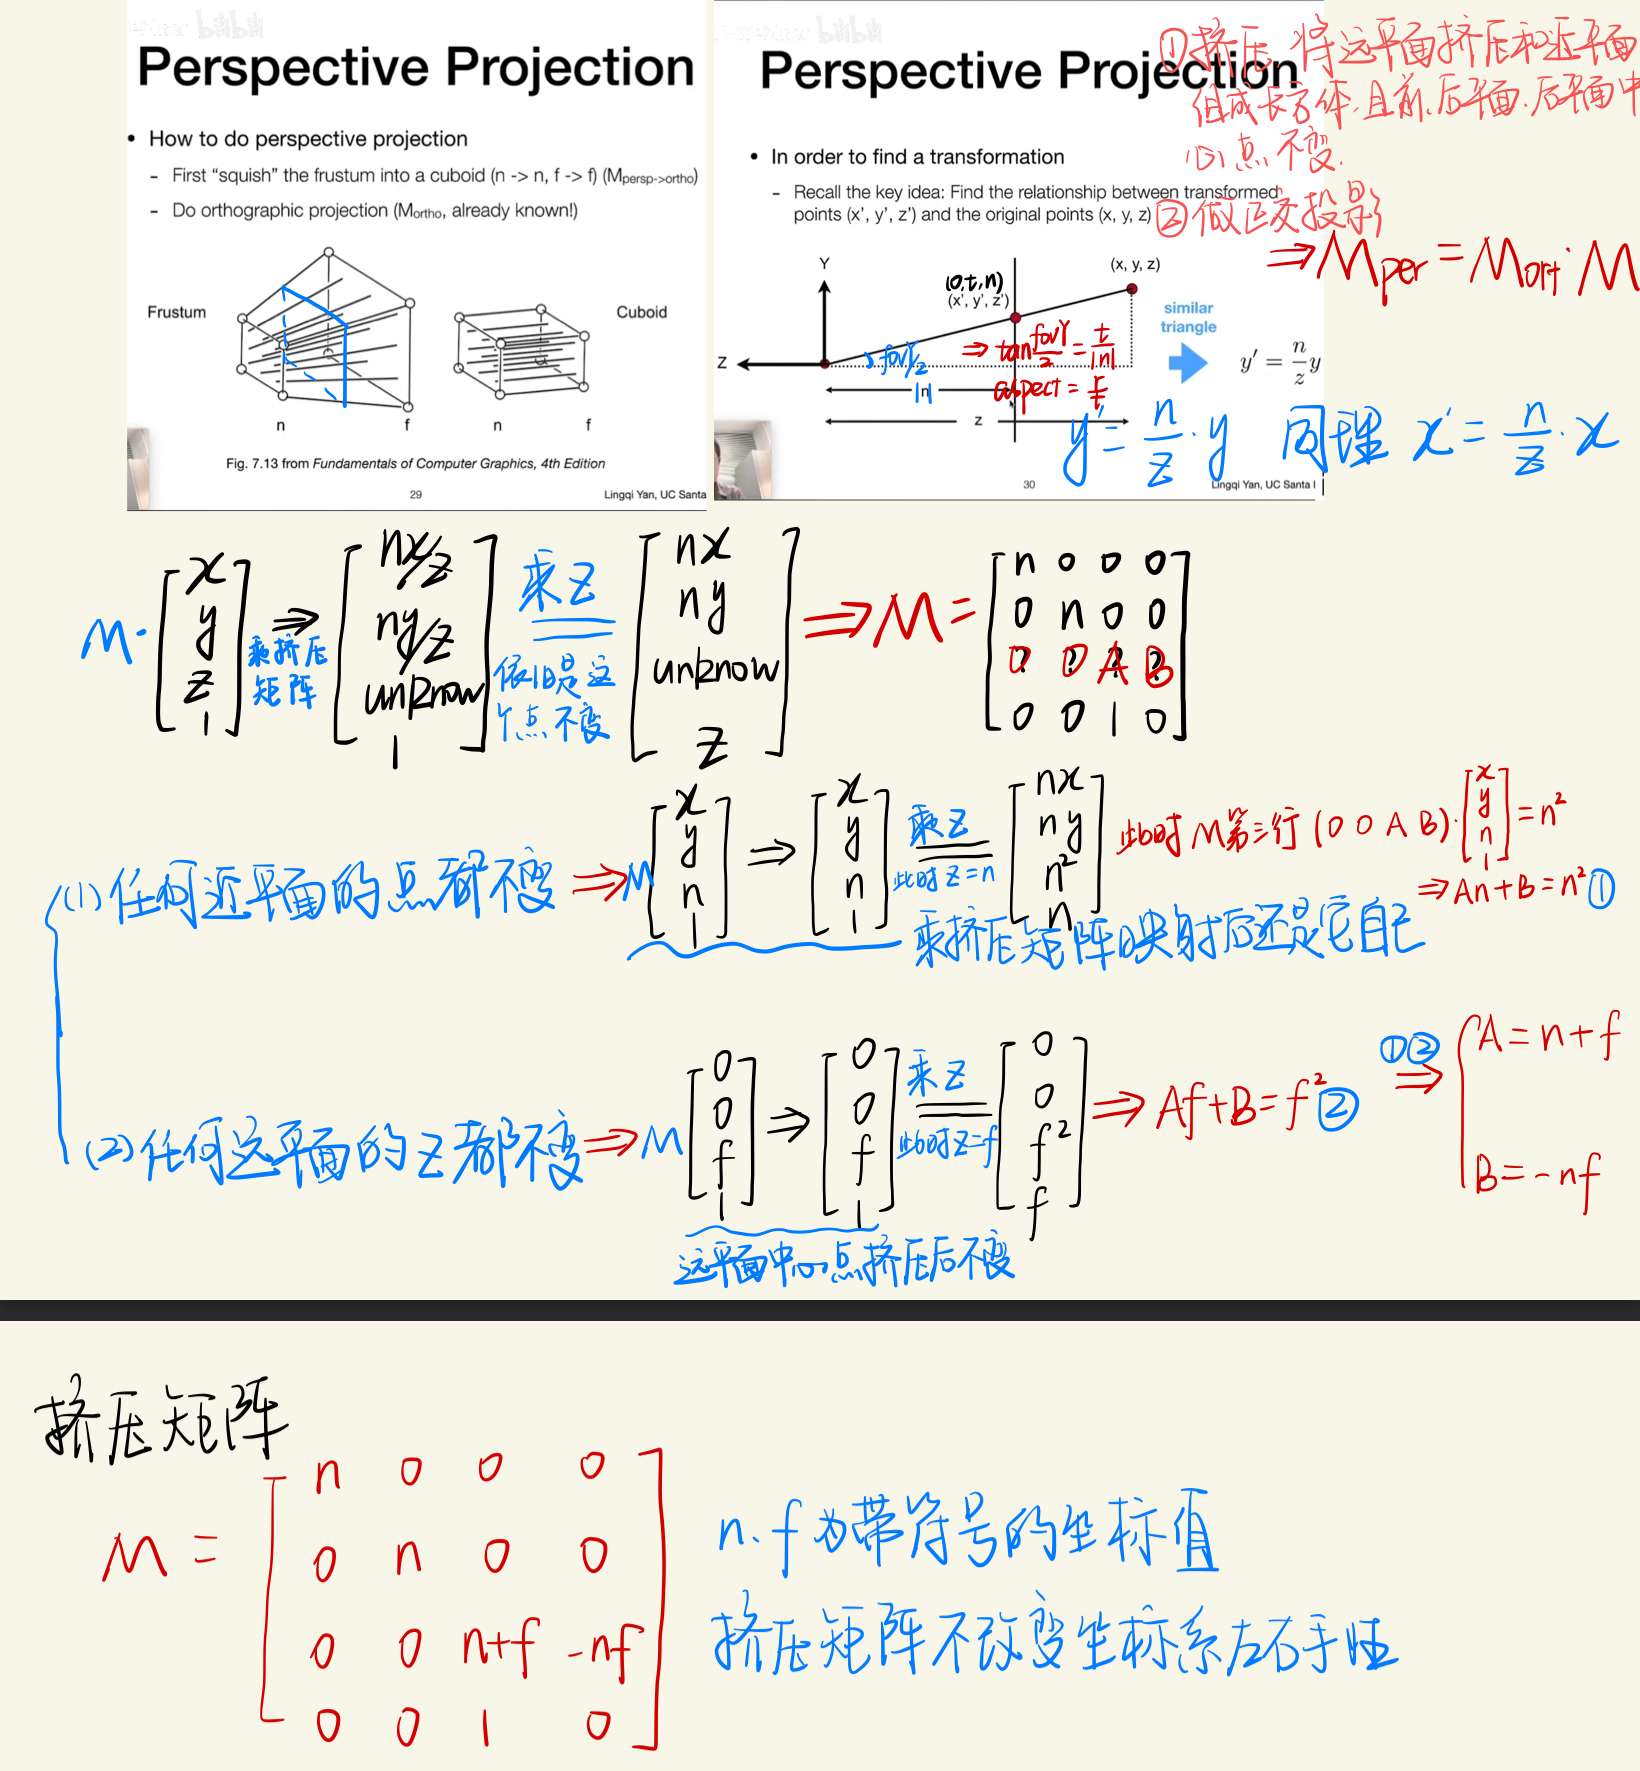 bilibili
Perspective Projection
• How to do perspective projection
- First “squish” the frustum into a cuboid (n -> n, f -> f) (Mpersp->ortho)
- Do orthographic projection (Mortho, already known!)
Frustum
Cuboid
n f n f
Fig. 7.13 from Fundamentals of Computer Graphics, 4th Edition
29
Lingqi Yan, UC Santa
bilibili
Perspective Projection
• In order to find a transformation
- Recall the key idea: Find the relationship between transformed
points (x’, y’, z’) and the original points (x, y, z)
Y
(0,t,n)
(x’, y’, z’)
(x, y, z)
Z
fovY/2
⇒ tan fovY/2 = t/|n|
aspect = r/t
|n|
z
similar
triangle
y′ = n/z y
30
Lingqi Yan, UC Santa
① 挤压 将远平面挤压和近平面
组成长方体,且前、后平面.后平面中
心点不变.
② 做正交投影
⇒ Mper = Mort · M
y′ = n/z · y 同理 x′ = n/z · x
M · [x y z 1] ⇒ [nx/z ny/z unknow 1] 乘z [nx ny unknow z] ⇒ M = [n 0 0 0; 0 n 0 0; 0 0 A B; 0 0 1 0]
乘挤压
矩阵
依旧是这
个点不变
(1) 任何近平面的点都不变 ⇒ M [x y n 1] ⇒ [x y n 1] 乘z 此时z=n [nx ny n² n]
此时M第三行 (0 0 A B) · [x y n 1] = n²
⇒ An+B=n² ①
乘挤压矩阵映射后还是它自己
(2) 任何远平面的z都不变 ⇒ M [0 0 f 1] ⇒ [0 0 f 1] 乘z 此时z=f [0 0 f² f] ⇒ Af+B=f² ②
①② ⇒ { A=n+f
B=-nf
远平面中心点挤压后不变
挤压矩阵
M = [n 0 0 0
0 n 0 0
0 0 n+f -nf
0 0 1 0]
n、f为带符号的坐标值
挤压矩阵不改变坐标系左右手性